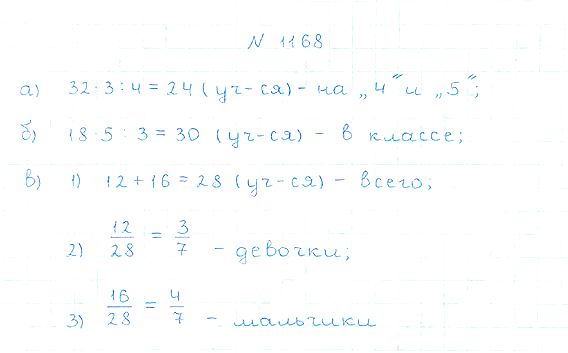 N 1168
а) 32·3:4=24 (уч-ся) - на „4" и „5";
б) 18·5:3=30 (уч-ся) - в классе;
в) 1) 12+16=28 (уч-ся) - всего;
2) 12/28 = 3/7 - девочки;
3) 16/28 = 4/7 - мальчики